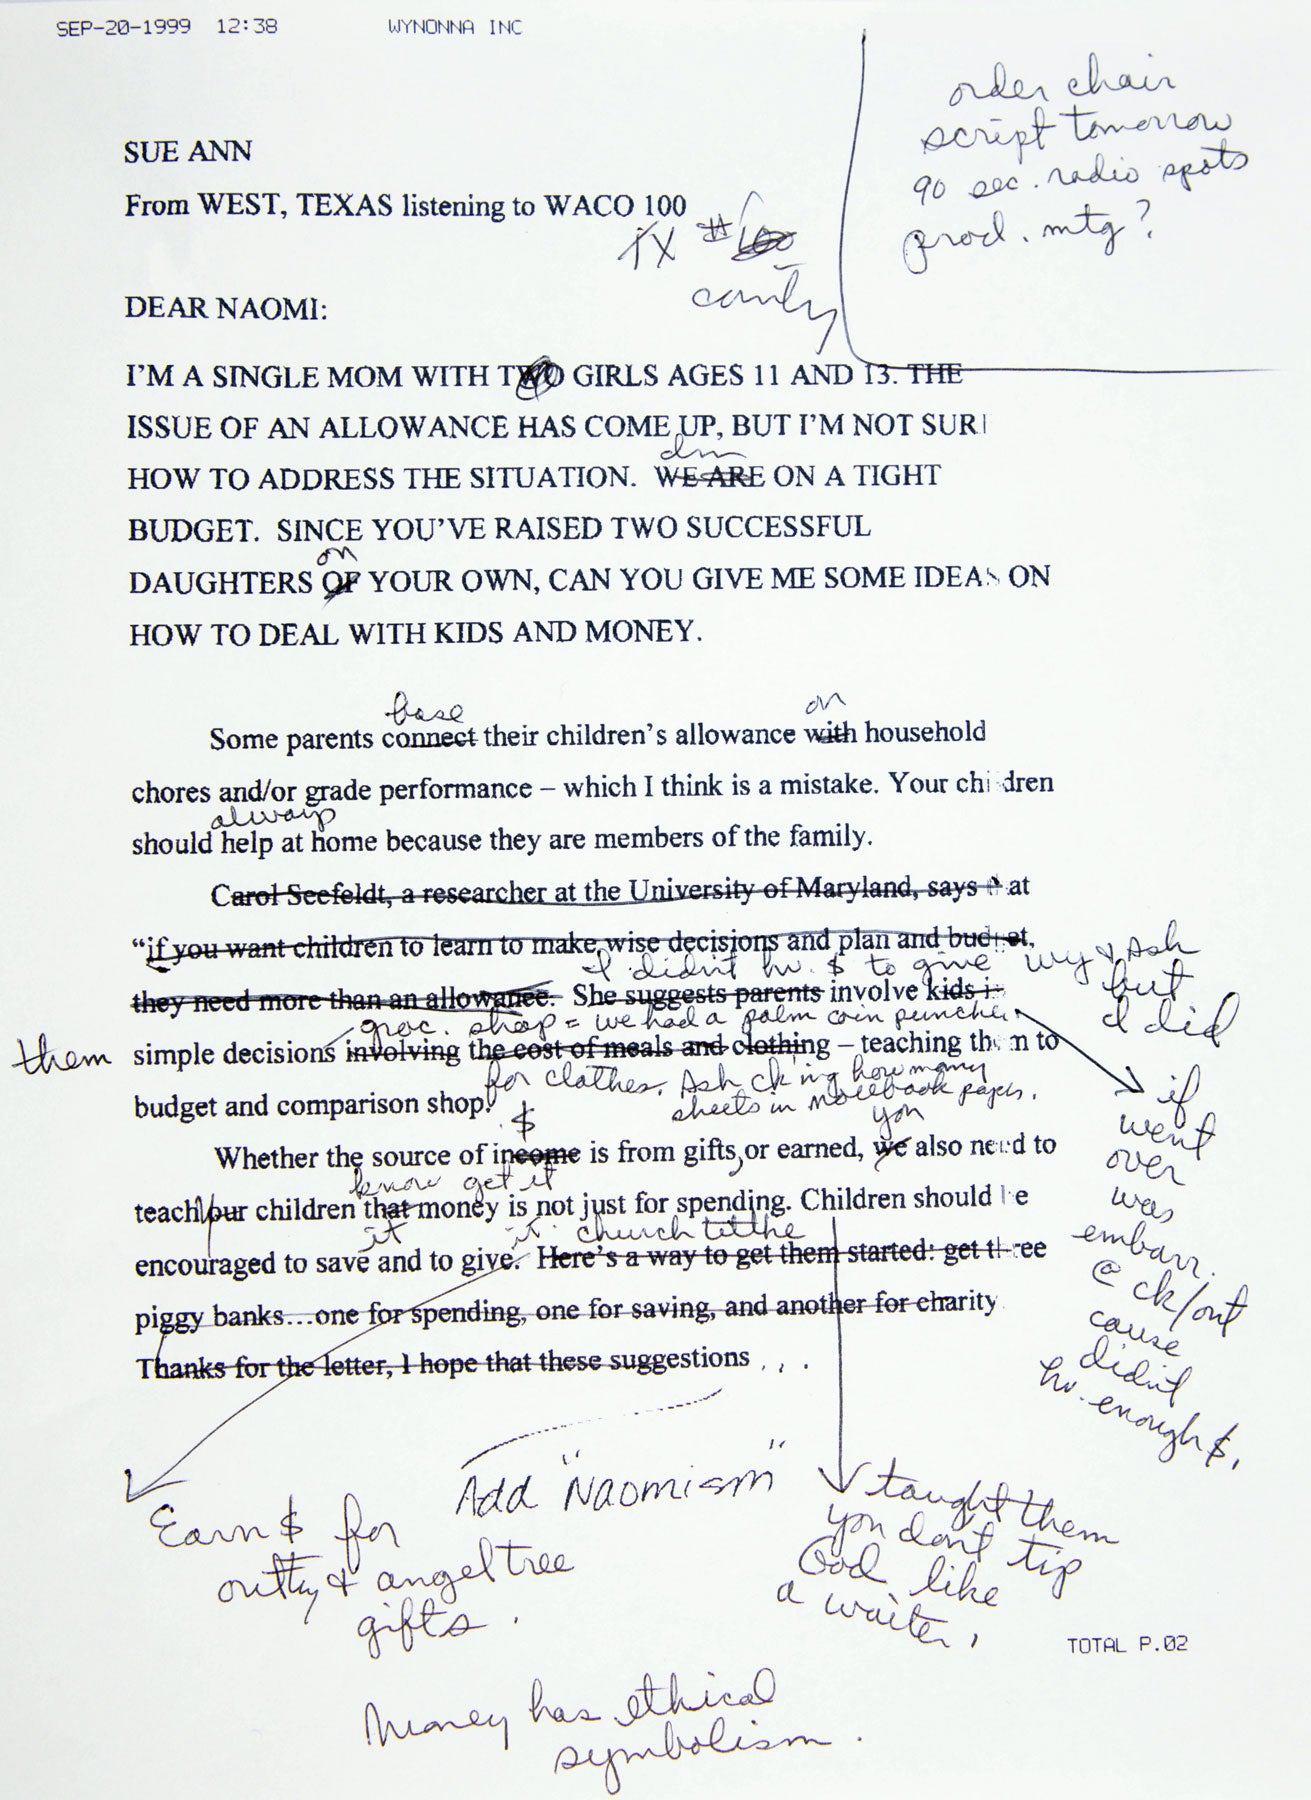 SEP-20-1999 12:38 WYNONNA INC
order chair
script tomorrow
90 sec. radio spots
prod. mtg?
SUE ANN
From WEST, TEXAS listening to WACO 100
TX #100
DEAR NAOMI:
I'M A SINGLE MOM WITH TWO GIRLS AGES 11 AND 13. THE
ISSUE OF AN ALLOWANCE HAS COME UP, BUT I'M NOT SUR
HOW TO ADDRESS THE SITUATION. WE ARE ON A TIGHT
BUDGET. SINCE YOU'VE RAISED TWO SUCCESSFUL
on
DAUGHTERS OF YOUR OWN, CAN YOU GIVE ME SOME IDEAS ON
HOW TO DEAL WITH KIDS AND MONEY.
base on
Some parents connect their children's allowance with household
chores and/or grade performance – which I think is a mistake. Your children
always
should help at home because they are members of the family.
Carol Seefeldt, a researcher at the University of Maryland, says that
"if you want children to learn to make wise decisions and plan and budget,
I didn't hv. $ to give Wy & Ash
but
I did
they need more than an allowance. She suggests parents involve kids in
groc. shop = we had a palm coin puncher
them simple decisions involving the cost of meals and clothing – teaching them to
for clothes. Ash ck'ing how many
sheets in notebook paper.
budget and comparison shop.
if
went
over
was
embarr.
@ ck/out
cause
didn't
hv. enough $.
$ you
Whether the source of income is from gifts, or earned, we also need to
know get it
teach our children that money is not just for spending. Children should be
it it church tithe
encouraged to save and to give. Here's a way to get them started: get three
piggy banks...one for spending, one for saving, and another for charity
Thanks for the letter, I hope that these suggestions . . .
Add "Naomism"
Earn $ for
& angel tree
gifts.
taught them
you don't tip
God like
a waiter.
TOTAL P.02
Money has ethical
symbolism.